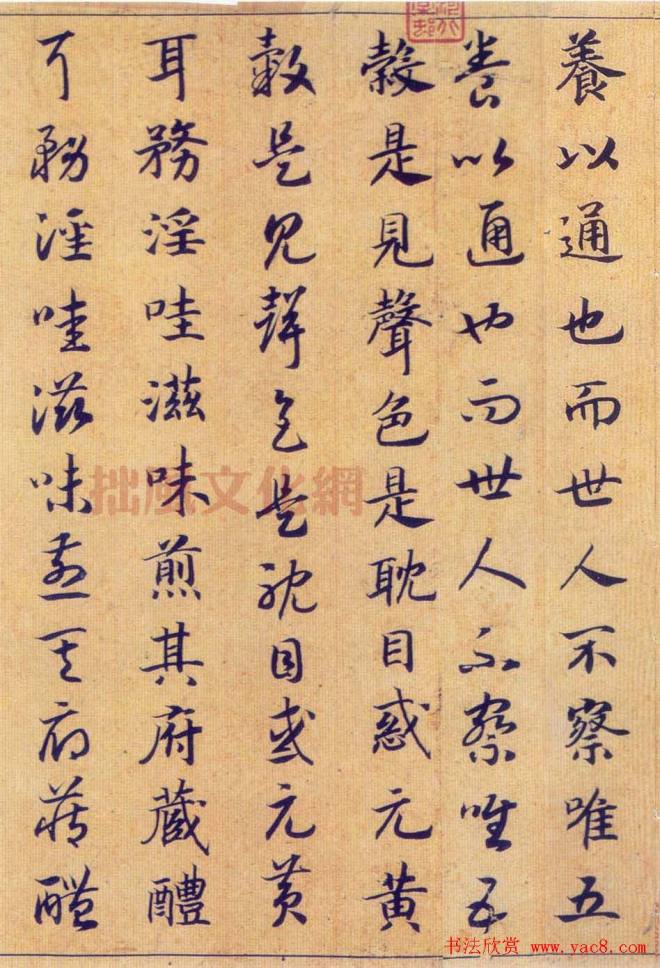 養以通也而世人不察唯五
養以通也而世人不察唯五
縠是見聲色是耽目惑元黃
縠是見聲色是耽目惑元黃
耳務淫哇滋味煎其府藏醴
耳務淫哇滋味煎其府藏醴
拙風文化網
书法欣赏 www.yac8.com